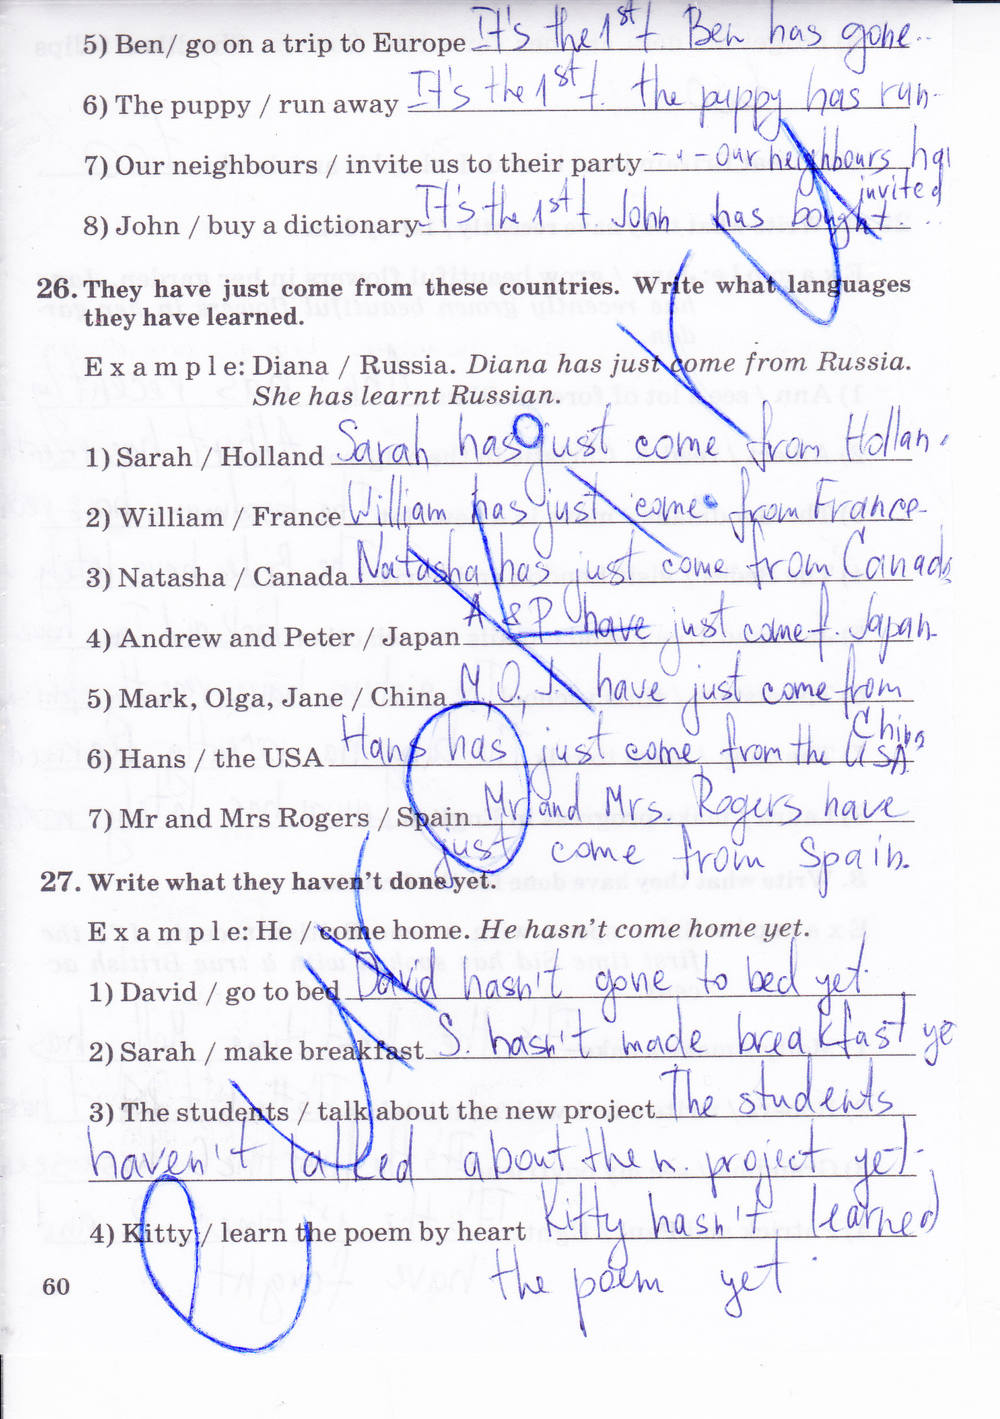 5) Ben/ go on a trip to Europe It's the 1st t Ben has gone..
6) The puppy / run away It's the 1st t. the puppy has run-
7) Our neighbours / invite us to their party - - - our neighbours ha
invited
8) John / buy a dictionary It's the 1st t John has bought.
26. They have just come from these countries. Write what languages
they have learned.
Example: Diana / Russia. Diana has just come from Russia.
She has learnt Russian.
1) Sarah / Holland Sarah has just come from Hollan.
2) William / France William has just come from France-
3) Natasha / Canada Natasha has just come from Canada
4) Andrew and Peter / Japan A & P have just come f. Japan-
5) Mark, Olga, Jane / China M, O, J. have just come from
China
6) Hans / the USA Hans has just come from the USA
7) Mr and Mrs Rogers / Spain Mr and Mrs. Rogers have
just come from Spain.
27. Write what they haven't done yet.
Example: He / come home. He hasn't come home yet.
1) David / go to bed David hasn't gone to bed yet.
2) Sarah / make breakfast S. hasn't made breakfast ye
3) The students / talk about the new project The students
haven't talked about the n project yet.
4) Kitty / learn the poem by heart Kitty hasn't learned
the poem yet.
60